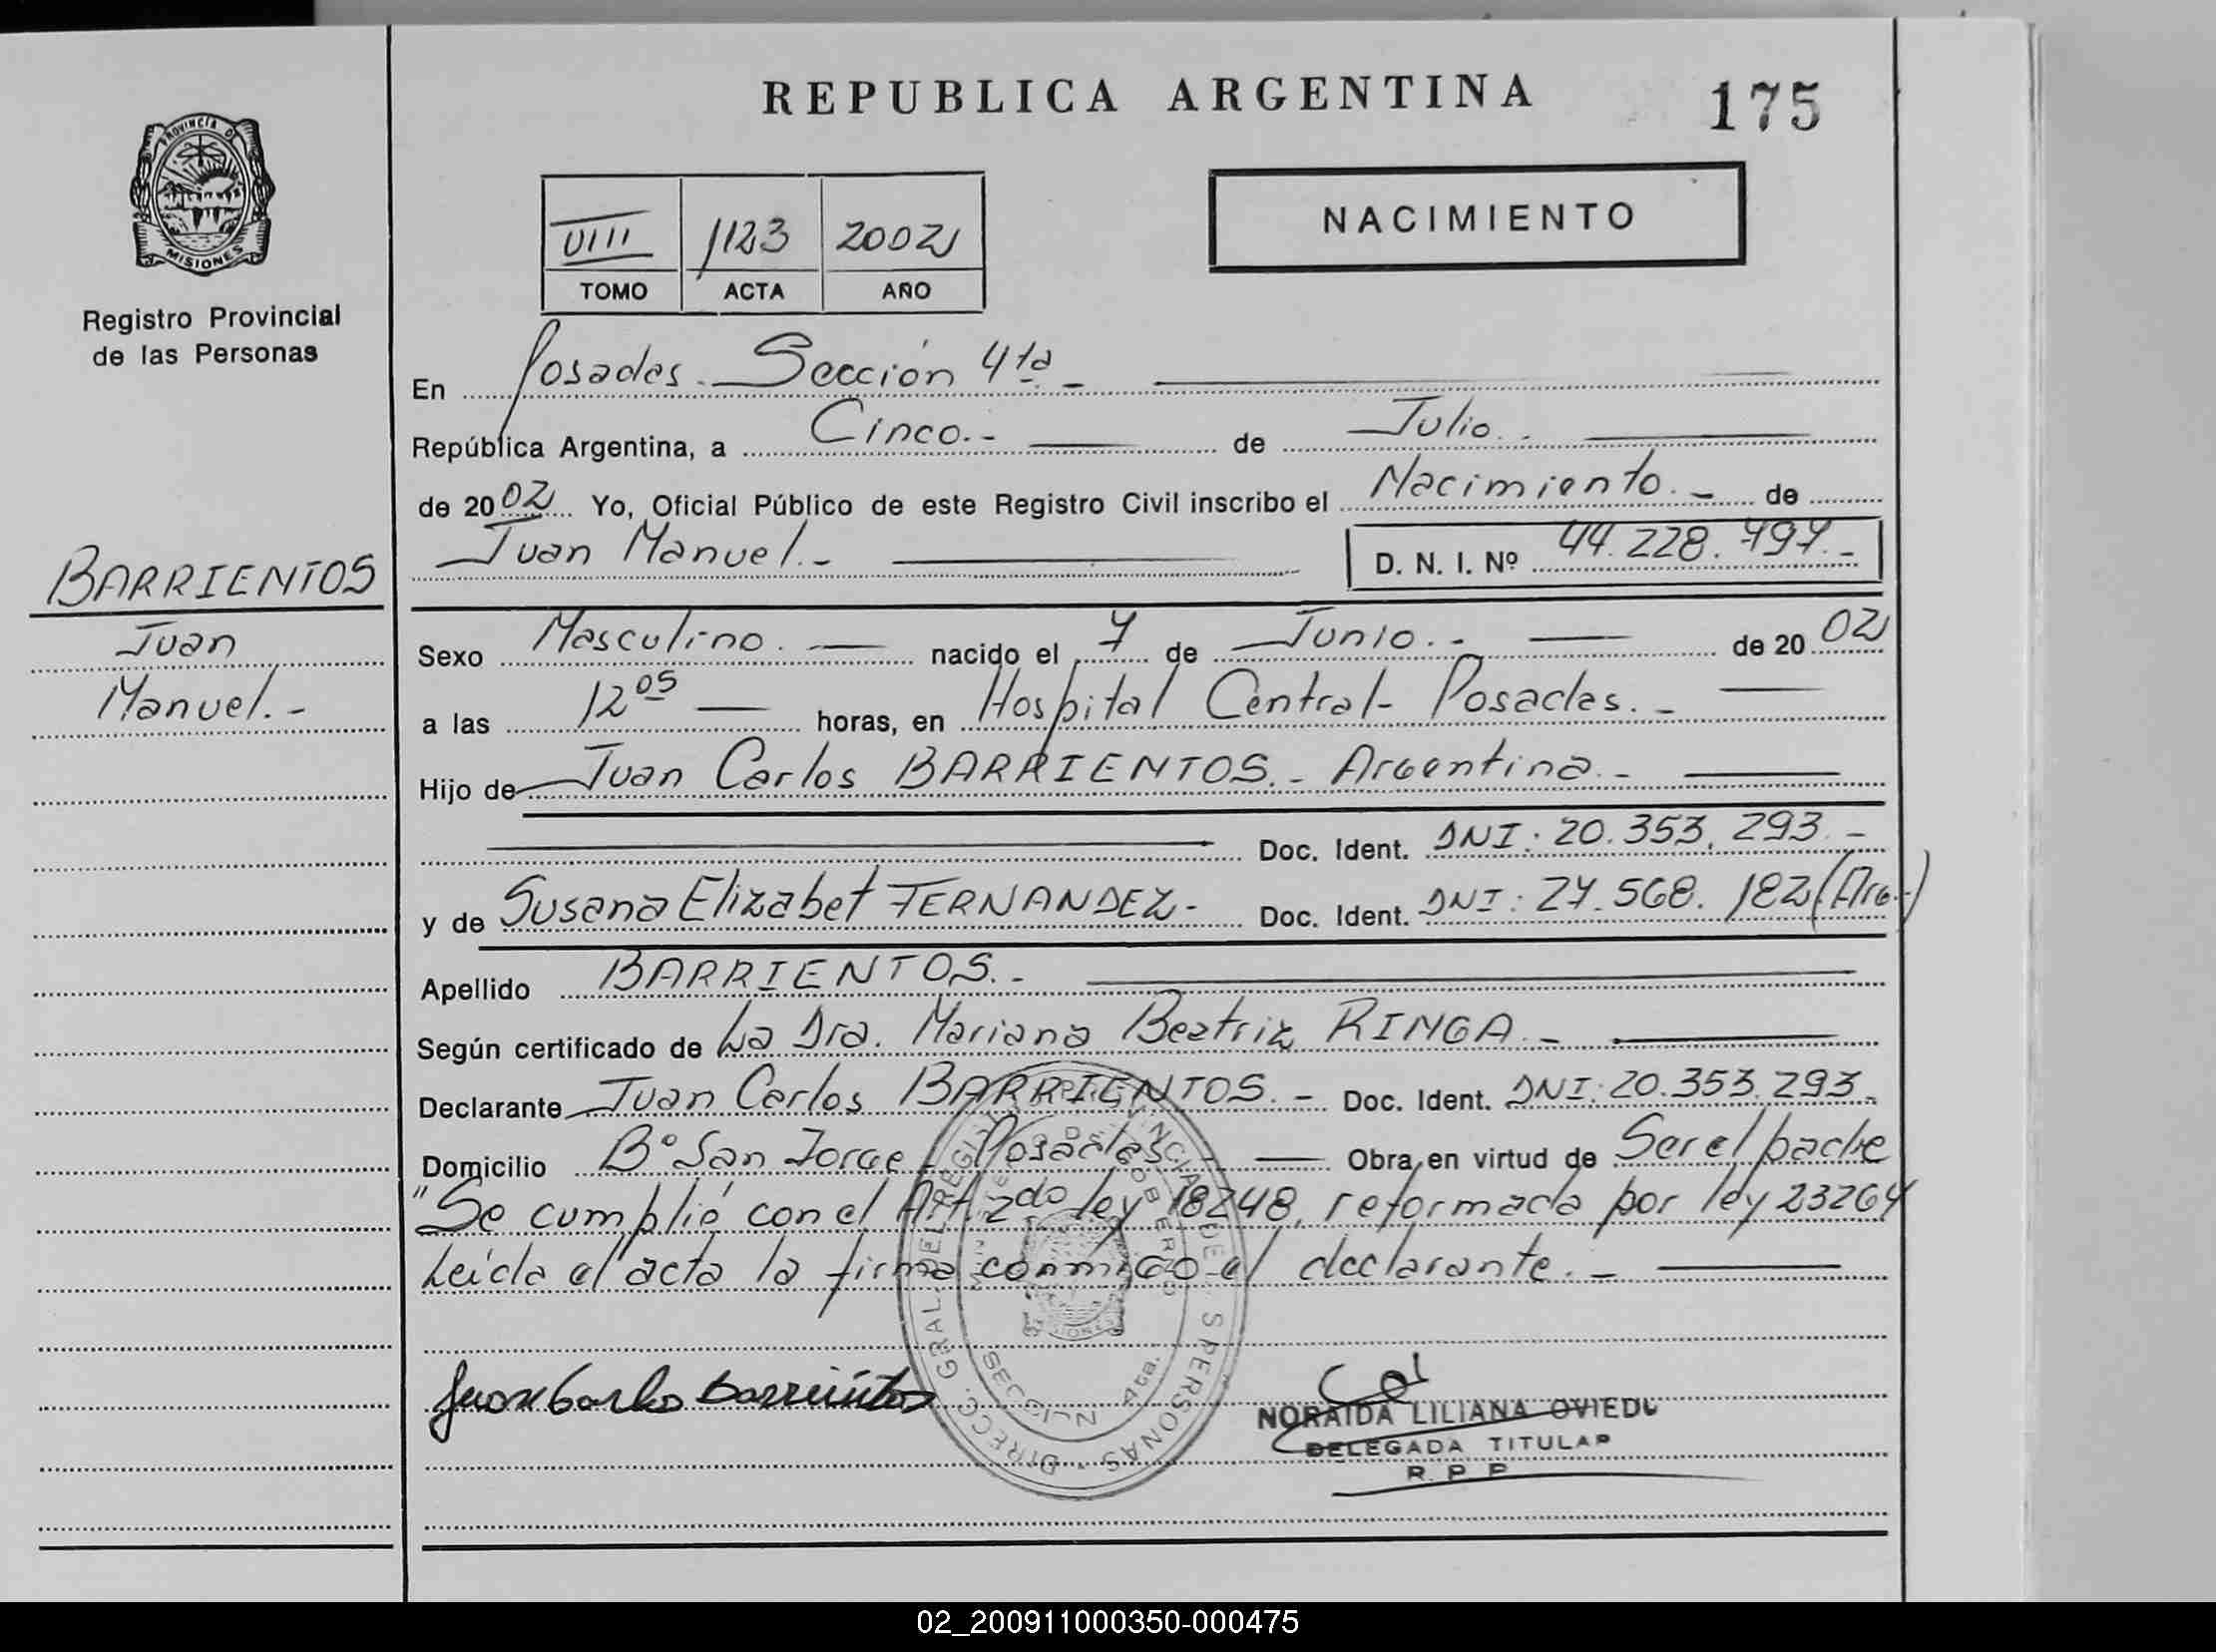 REPUBLICA ARGENTINA
175
PROVINCIA D
MISIONES
Registro Provincial
de las Personas
VIII 1123 2002
TOMO ACTA AÑO
NACIMIENTO
En Posadas. Sección 4ta.-
República Argentina, a Cinco.- de Julio.
de 2002 Yo, Oficial Público de este Registro Civil inscribo el Nacimiento.- de
Juan Manuel.- D. N. I. Nº 44.228.797.-
BARRIENTOS
Juan
Manuel.-
Sexo Masculino. nacido el 7 de Junio.- de 2002
a las 12 05 horas, en Hospital Central- Posadas.-
Hijo de Juan Carlos BARRIENTOS.- Argentina.-
Doc. Ident. DNI: 20.353.293.-
y de Susana Elizabet FERNANDEZ- Doc. Ident. DNI: 27.568.182 (Arg.-)
Apellido BARRIENTOS.-
Según certificado de La Dra. Mariana Beatriz RINGA.-
Declarante Juan Carlos BARRIENTOS.- Doc. Ident. DNI: 20.353.293.-
Domicilio Bº San Jorge- Posadas- Obra en virtud de Ser el padre
"Se cumplió con el Art. 2do ley 18248, reformada por ley 23264
Leída el acta la firma conmigo el declarante.-
Juan Carlos Barrientos
SECCION 4ta.
NORAIDA LILIANA OVIEDO
DELEGADA TITULAR
R. P. P.
02_200911000350-000475